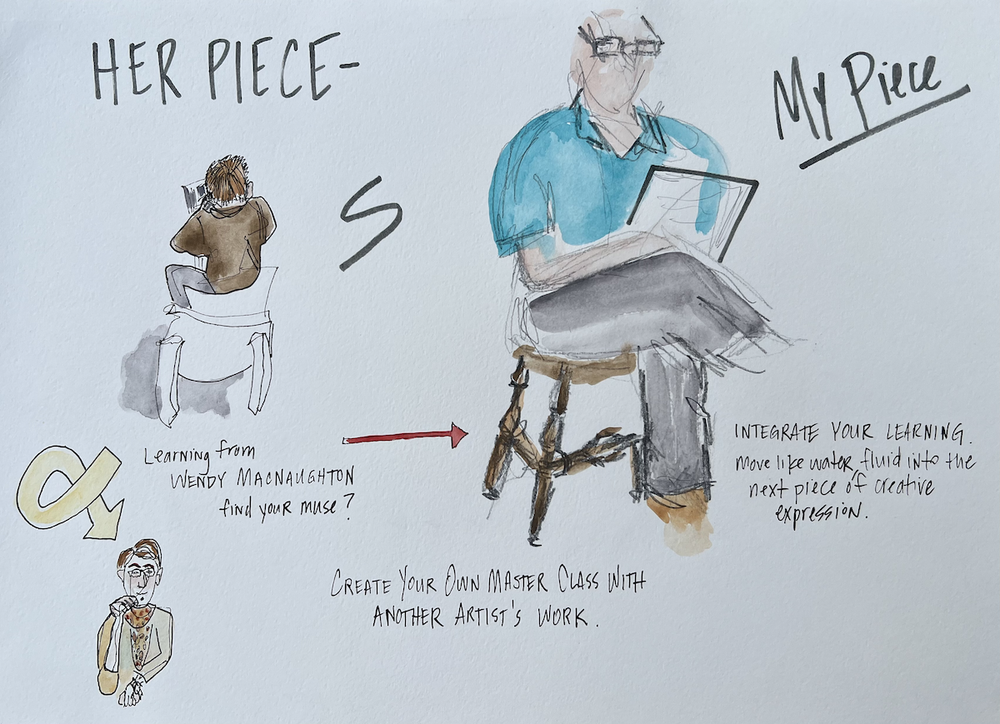 HER PIECE-
My Piece
Learning from
WENDY MACNAUGHTON
find your muse?
INTEGRATE YOUR LEARNING.
Move like water, fluid into the
next piece of creative
expression.
CREATE YOUR OWN MASTER CLASS WITH
ANOTHER ARTIST'S WORK.